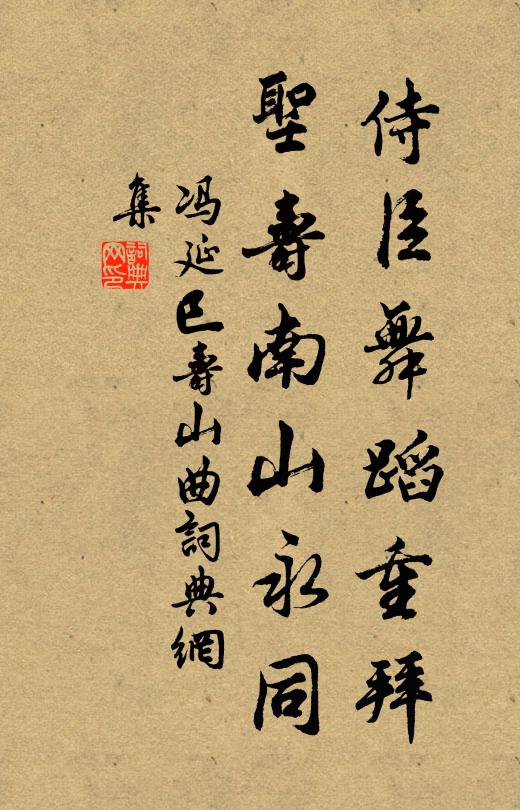 侍臣舞蹈重拜
聖壽南山永同
冯延巳壽山曲詞典網
集
詞典
网印